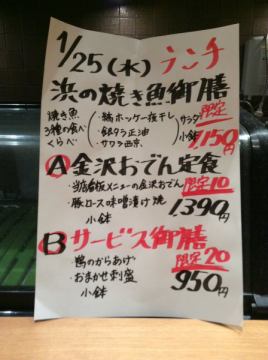 1/25(水)ランチ
浜の焼き魚御膳
焼き魚 3種の食べくらべ
・縞ホッケ一夜干し
・銀タラ正油
・サワラ西京
サラダ
小鉢
限定
1,150円
A金沢おでん定食
・当店看板メニューの金沢おでん 限定10
・豚ロース味噌漬け焼
小鉢 1,390円
Bサービス御膳
・鶏のからあげ 限定20
・おまかせ刺盛
小鉢 950円